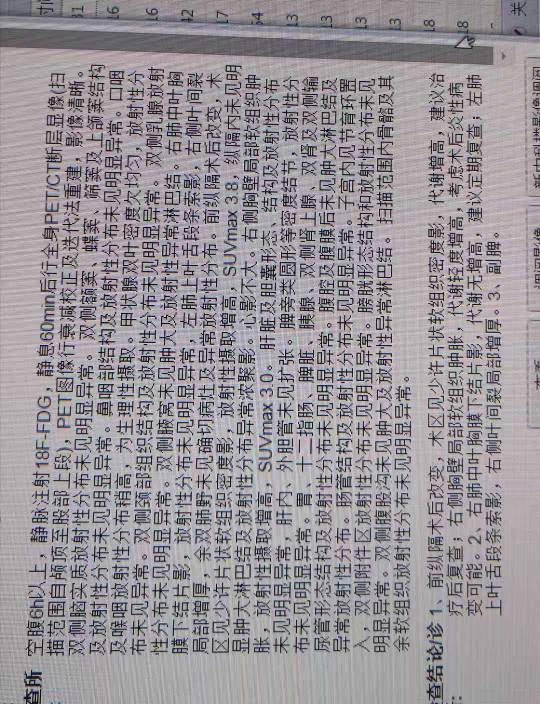 查所
空腹6h以上，静脉注射18F-FDG，静息60min后行全身PET/CT断层显像(扫
描范围自颅顶至股部上段)，PET图像行衰减校正及迭代法重建，影像清晰。
双侧脑实质放射性分布未见明显异常。双侧额窦、蝶窦、筛窦及上颌窦结构
及放射性分布未见明显异常。鼻咽部结构及放射性分布未见明显异常。口咽
及喉咽放射性分布稍高，为生理性摄取。甲状腺双叶密度欠均匀，放射性分
布未见异常。双侧颈部组织结构及放射性分布未见明显异常。双侧乳腺放射
性分布未见明显异常。双侧腋窝未见肿大及放射性异常淋巴结。右肺中叶胸
膜下结片影，放射性分布未见明显异常，左肺上叶舌段条索影，右侧叶间裂
局部增厚，余双肺野未见确切病灶及异常放射性分布。前纵隔术后改变，术
区见少许片状软组织密度影，放射性摄取增高，SUVmax 3.8，纵隔内未见明
显肿大淋巴结及放射性分布异常浓聚影。心影不大。右侧胸壁局部软组织肿
胀，放射性摄取增高，SUVmax 3.0。肝脏及胆囊形态、结构及放射性分布
未见明显异常，肝内、外胆管未见扩张。脾旁类圆形等密度结节，放射性分
布未见明显异常。胃、十二指肠、脾脏、胰腺、双侧肾上腺、双肾及双侧输
尿管形态结构及放射性分布未见明显异常。腹腔及腹膜后未见肿大淋巴结及
异常放射性分布。肠管结构及放射性分布未见明显异常。子宫内见节育环置
入，双侧附件区放射性分布未见明显异常。膀胱形态结构和放射性分布未见
明显异常。双侧腹股沟未见肿大及放射性异常淋巴结。扫描范围内骨骼及其
余软组织放射性分布未见明显异常。
查结论/诊
1、前纵隔术后改变，术区见少许片状软组织密度影，代谢增高，建议治
疗后复查；右侧胸壁局部软组织肿胀，代谢轻度增高，考虑术后炎性病
变可能。2、右肺中叶胸膜下结片影，代谢无增高，建议定期复查；左肺
上叶舌段条索影，右侧叶间裂局部增厚。3、副脾。
16
16
12
17
54
13
13
13
13
18
18
关